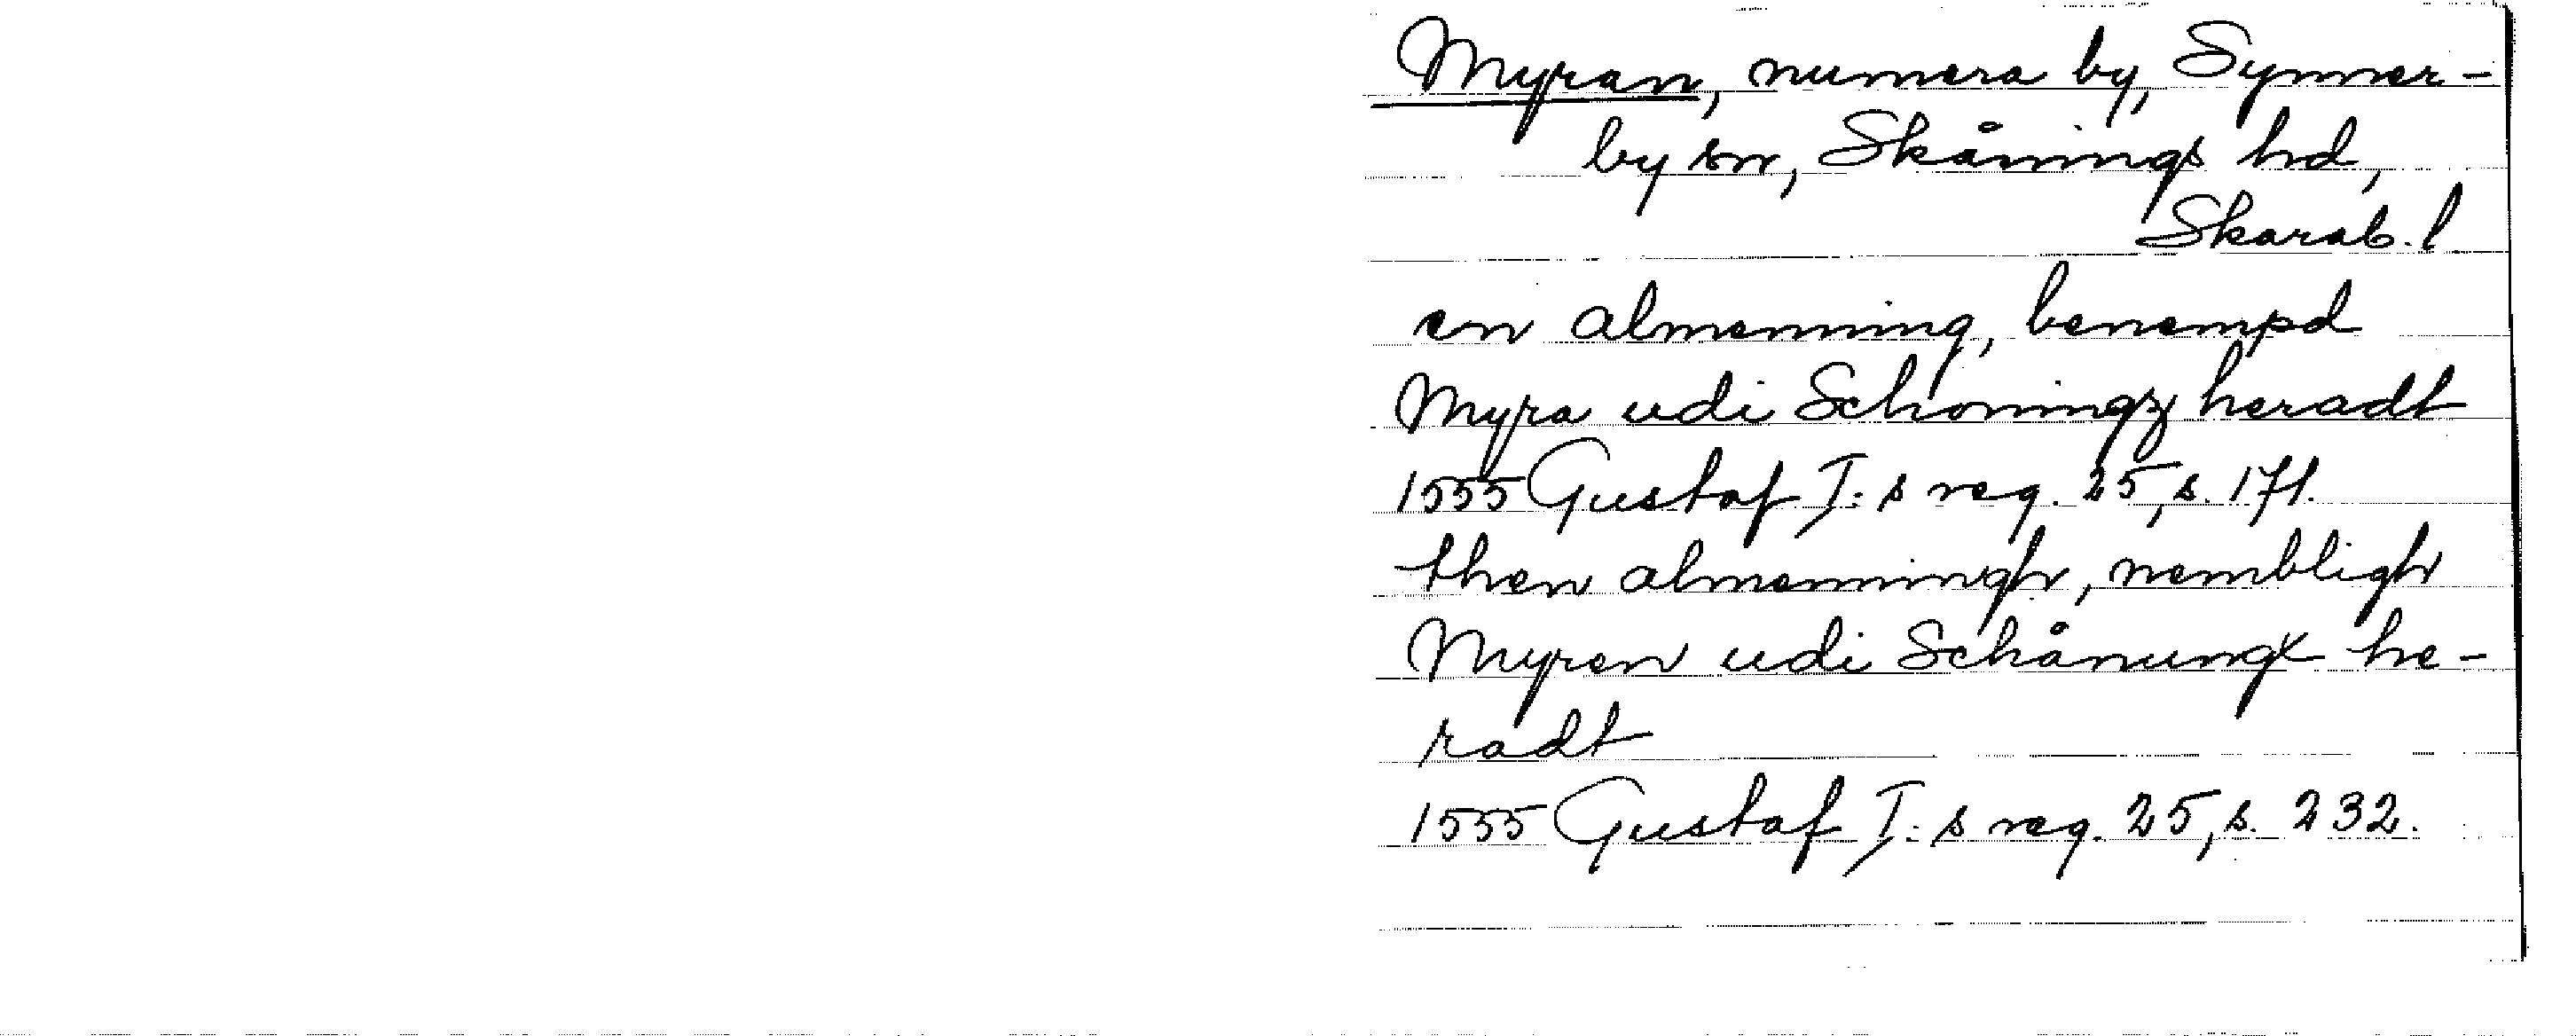 Myran, numera by, Synner-
by sn, Skånings hd,
Skarab. l
en almenning, benempd
Myra udi Schoningz heradt
1555 Gustaf I:s reg. 25, s. 171.
then almenningh, nembligh
Myren udi Schånungx he-
radt
1555 Gustaf I:s reg. 25, s. 232.